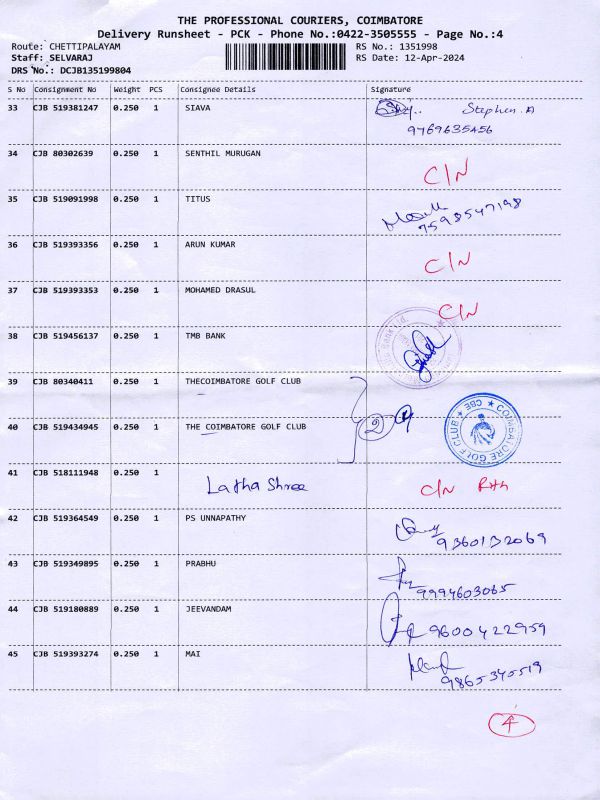 THE PROFESSIONAL COURIERS, COIMBATORE
Delivery Runsheet - PCK - Phone No.:0422-3505555 - Page No.:4
Route: CHETTIPALAYAM RS No.: 1351998
Staff: SELVARAJ RS Date: 12-Apr-2024
DRS No.: DCJB135199804
S No Consignment No Weight PCS Consignee Details Signature
33 CJB 519381247 0.250 1 SIAVA Stephen. A
9769635456
34 CJB 80302639 0.250 1 SENTHIL MURUGAN
C/N
35 CJB 519091998 0.250 1 TITUS
7598547198
36 CJB 519393356 0.250 1 ARUN KUMAR
C/N
37 CJB 519393353 0.250 1 MOHAMED DRASUL
C/N
38 CJB 519456137 0.250 1 TMB BANK
39 CJB 80340411 0.250 1 THECOIMBATORE GOLF CLUB
40 CJB 519434945 0.250 1 THE COIMBATORE GOLF CLUB
2
COIMBATORE GOLF CLUB ★ CBE ★
41 CJB 518111948 0.250 1
Latha Shree C/N
42 CJB 519364549 0.250 1 PS UNNAPATHY
9360132069
43 CJB 519349895 0.250 1 PRABHU
9994603065
44 CJB 519180889 0.250 1 JEEVANDAM
9600422959
45 CJB 519393274 0.250 1 MAI
9865345519
4